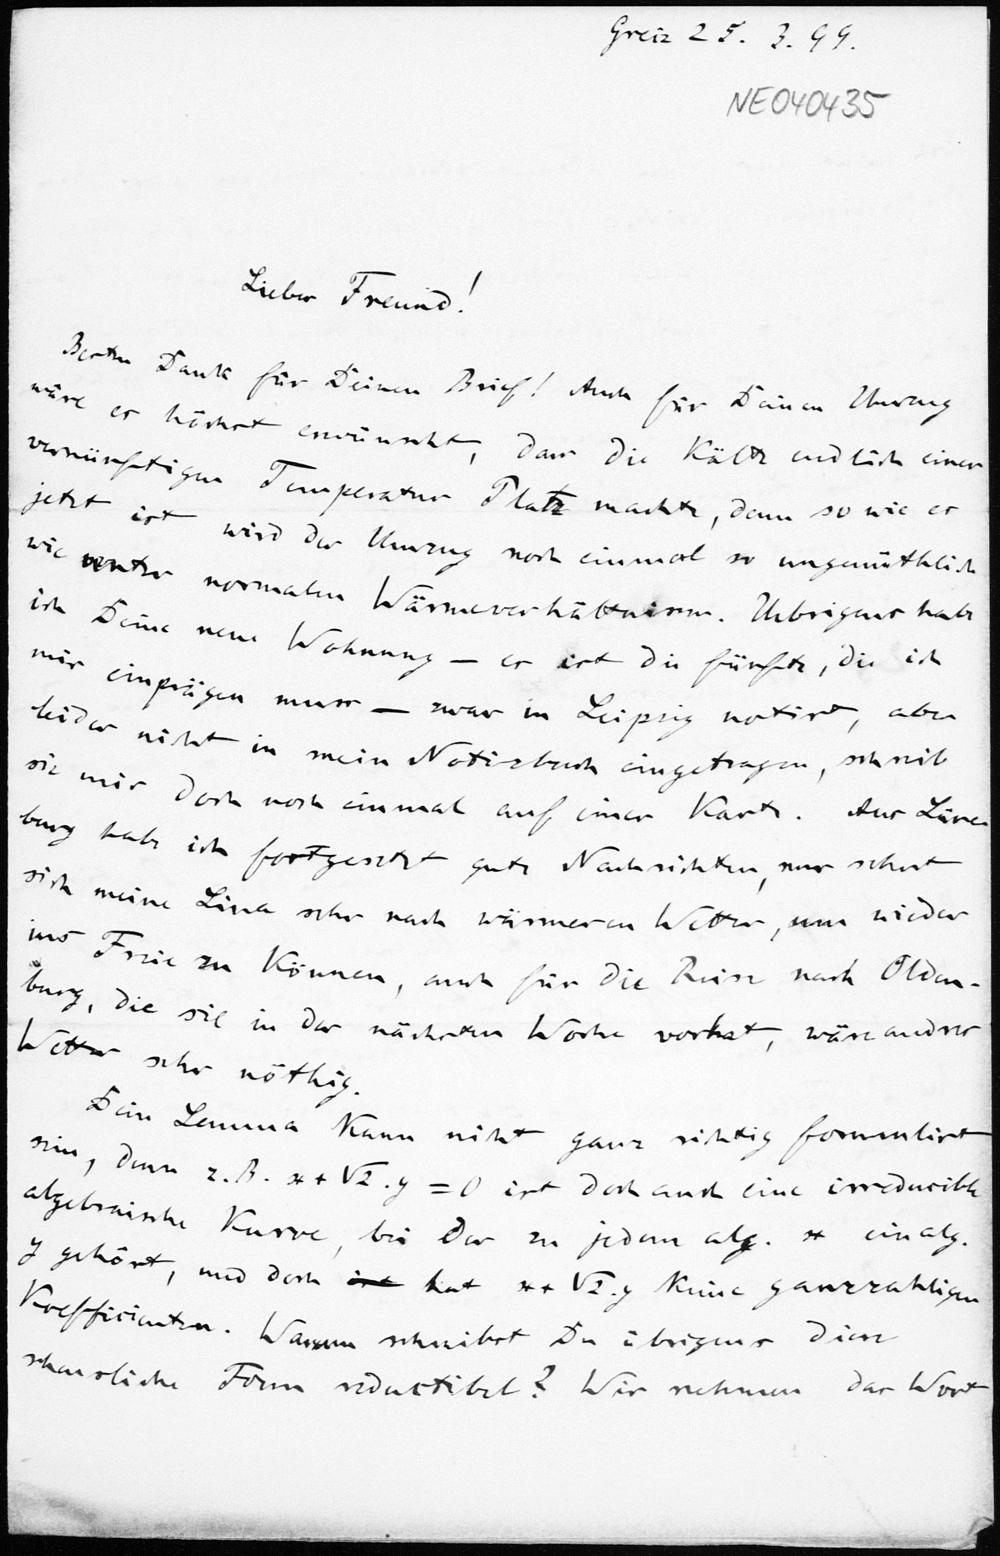 Greiz 25. 3. 99.
NE040435
Lieber Freund!
Besten Dank für Deinen Brief! Auch für Deinen Umzug
wäre es höchst erwünscht, dass die Kälte endlich einer
vernünftigen Temperatur Platz machte, denn so wie es
jetzt ist wird der Umzug noch einmal so ungemüthlich
wie unter normalen Wärmeverhältnissen. Uebrigens habe
ich Deine neue Wohnung – es ist die fünfte, die ich
mir einprägen muss – zwar in Leipzig notirt, aber
leider nicht in mein Notizbuch eingetragen, schreib
sie mir doch noch einmal auf einer Karte. Aus Lüne
burg habe ich fortgesetzt gute Nachrichten, nur sehnt
sich meine Lina sehr nach wärmeren Wetter, um wieder
ins Freie zu können, auch für die Reise nach Olden-
burg, die sie in der nächsten Woche vorhat, wäre andres
Wetter sehr nöthig.
Dein Lemma kann nicht ganz richtig formulirt
sein, denn z. B. x + √2 . y = 0 ist doch auch eine irreducible
algebraische Kurve, bei der zu jedem alg. x ein alg.
y gehört, und doch ist hat x + √2 . y keine ganzzahligen
Koefficienten. Warum schreibst Du übrigens diese
scheusliche Form reductibel? Wir nehmen das Wort